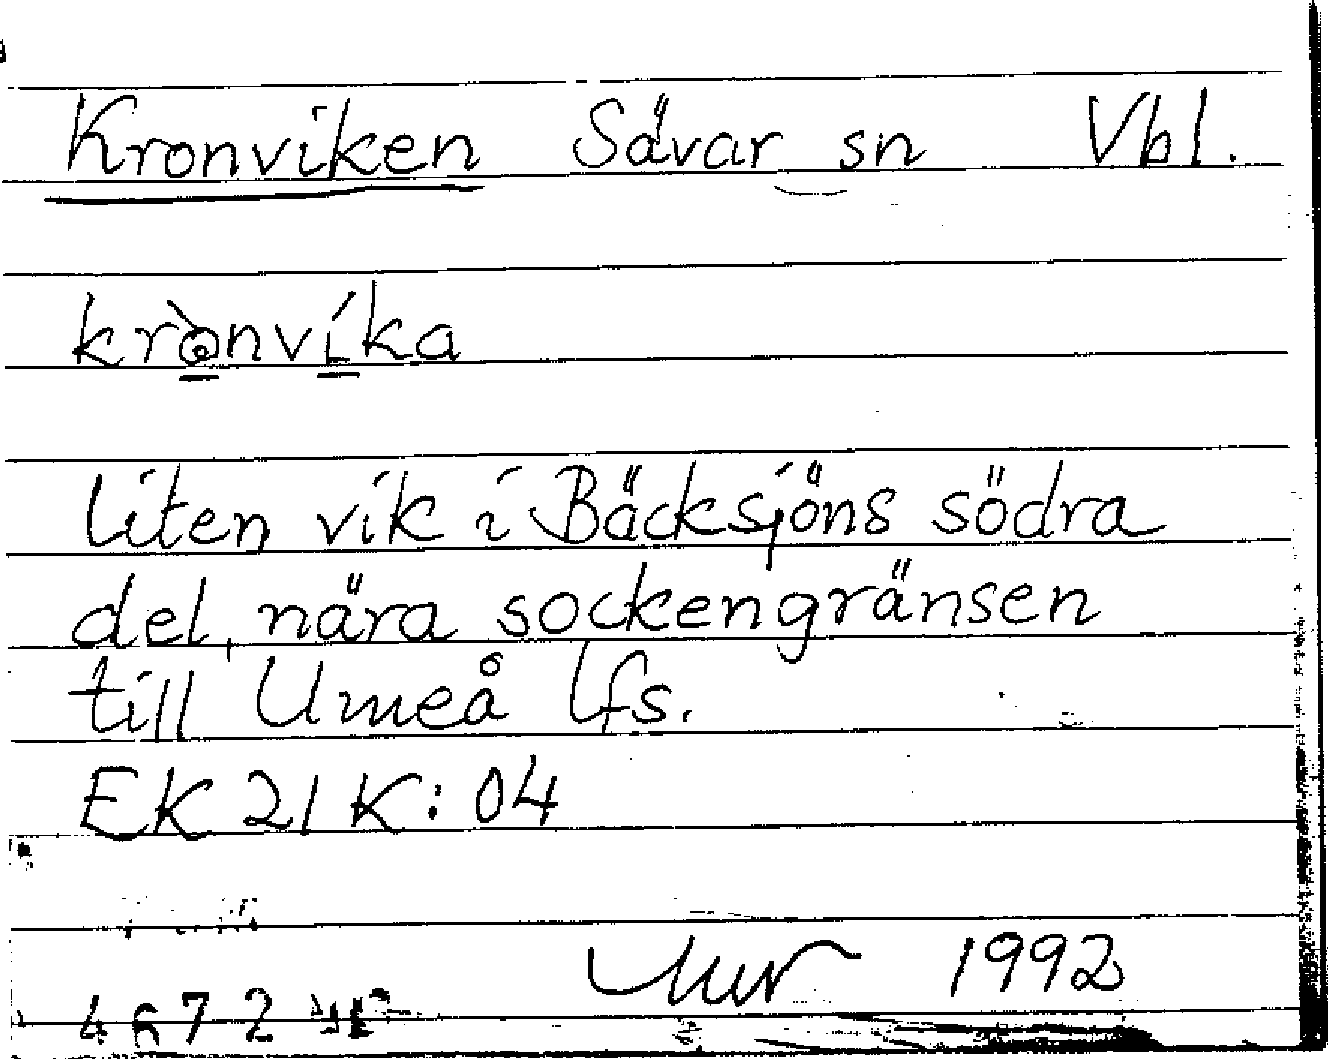 Kronviken Sävar sn Vbl.
liten vik i Bäcksjöns södra
del, nära sockengränsen
till Umeå lfs.
EK 21 K: 04
1992
4672